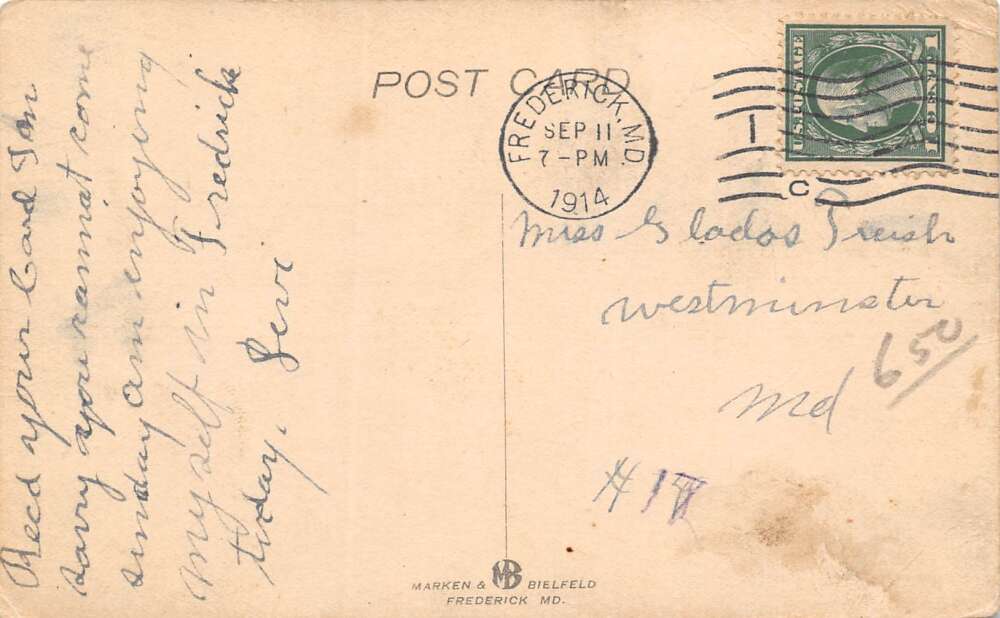 POST CARD
FREDERICK, MD.
SEP 11
7-PM
1914
1
C
U.S. POSTAGE
1 CENT 1
Recd your Card I am
sorry you cannot come
sunday am enjoying
myself in Fredrick
today.
Miss Glados
Westminster
Md
650
#17
MARKEN & MB BIELFELD
FREDERICK MD.